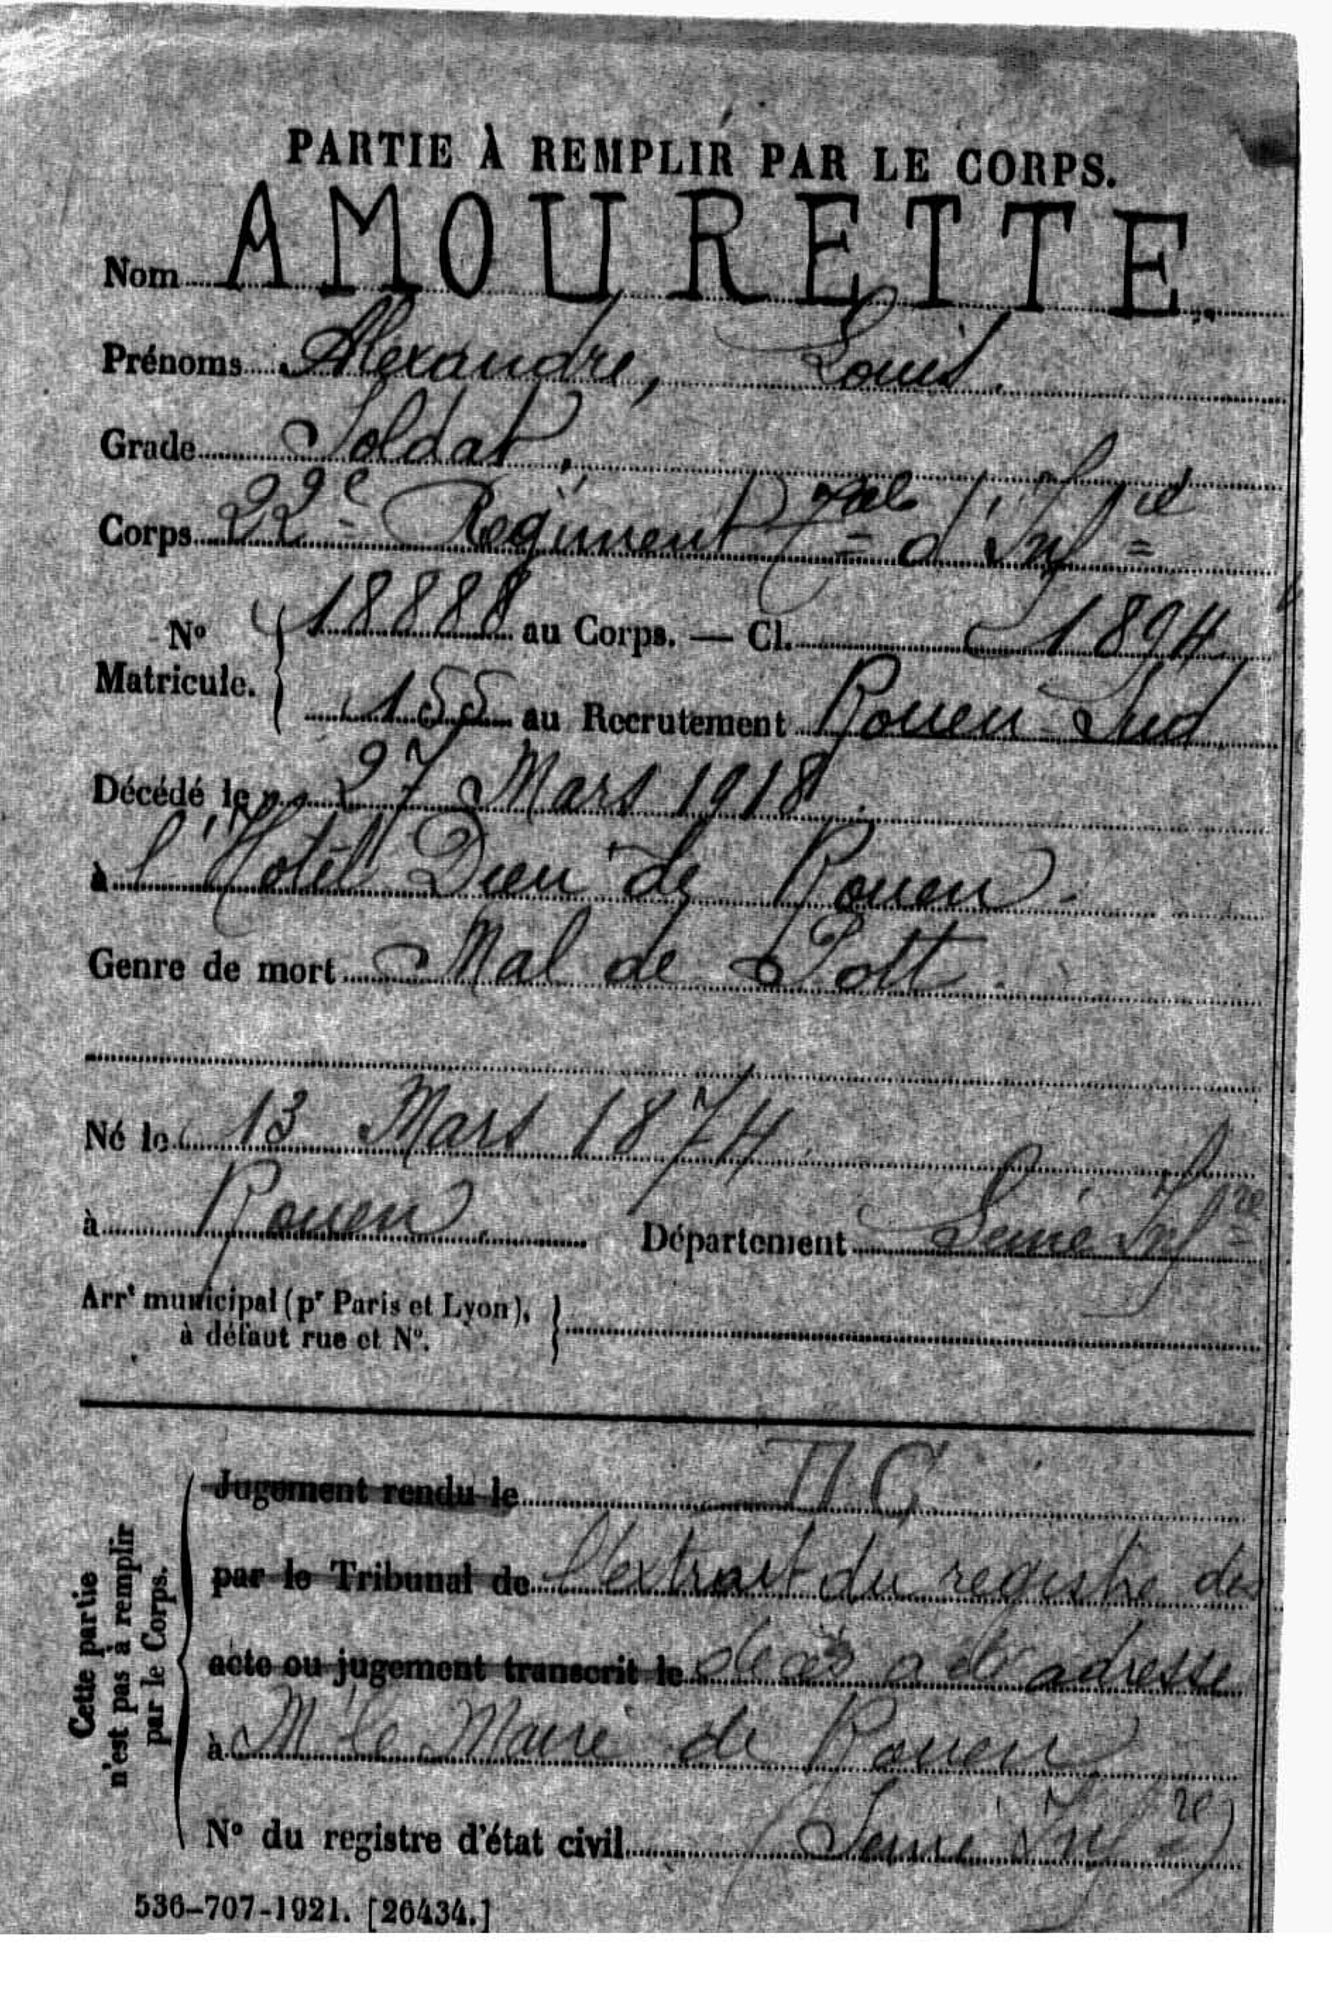 PARTIE À REMPLIR PAR LE CORPS.
Nom AMOURETTE.
Prénoms Alexandre, Louis.
Grade Soldat,
Corps 22e Régiment Tal d'Infie
No Matricule. { 18888 au Corps. — Cl. 1894
155 au Recrutement Rouen Sud
Décédé le 27 Mars 1918.
à l'Hôtel Dieu de Rouen.
Genre de mort Mal de Pott.
Né le 13 Mars 1874
à Rouen. Département Seine Infre
Arrt municipal (pr Paris et Lyon),
à défaut rue et No.
Cette partie
n'est pas à remplir
par le Corps.
Jugement rendu le
par le Tribunal de l'extrait du registre des
acte ou jugement transcrit le décès a été adressé
à M le Maire de Rouen
No du registre d'état civil (Seine Infre)
536-707-1921. [26434.]